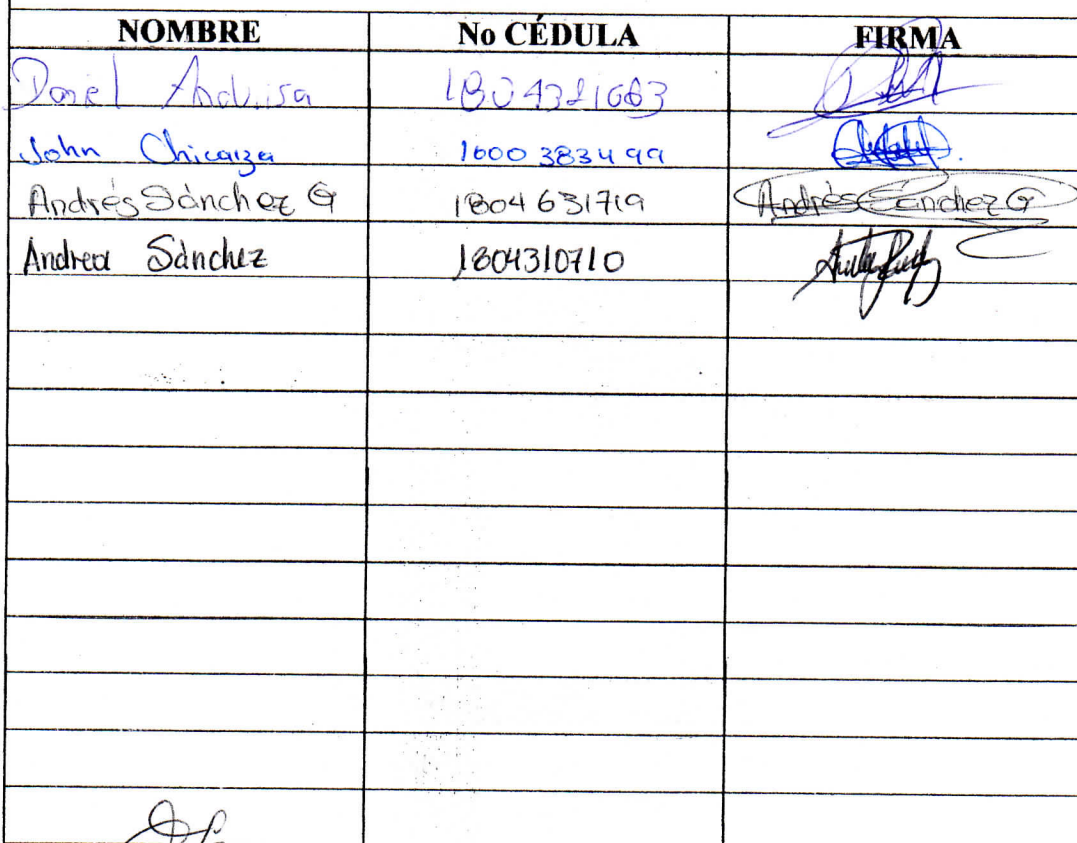 NOMBRE No CÉDULA FIRMA
Daniel
John Chicaiza 1600383499
Andrés Sánchez G 1804631719 Andrés Sánchez G
Andrea Sánchez 1804310710